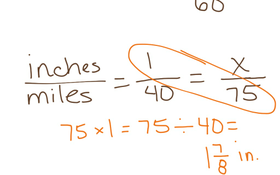 60
inches/miles = 1/40 = x/75
75 × 1 = 75 ÷ 40 =
1 7/8 in.